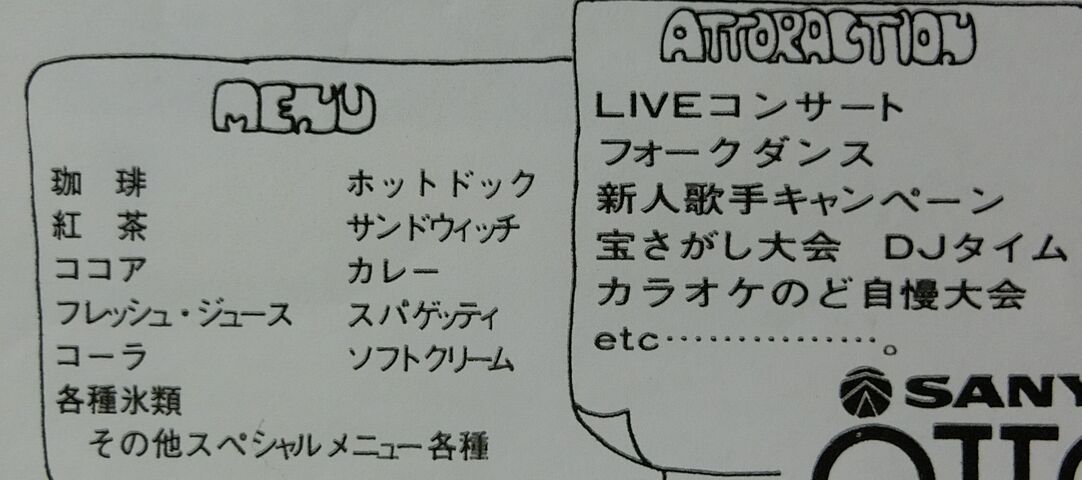 MENU
珈 琲
紅 茶
ココア
フレッシュ・ジュース
コーラ
各種氷類
ホットドック
サンドウィッチ
カレー
スパゲッティ
ソフトクリーム
その他スペシャルメニュー各種
ATTORACTION
LIVEコンサート
フォークダンス
新人歌手キャンペーン
宝さがし大会 DJタイム
カラオケのど自慢大会
etc……………。
SANY
OTTO